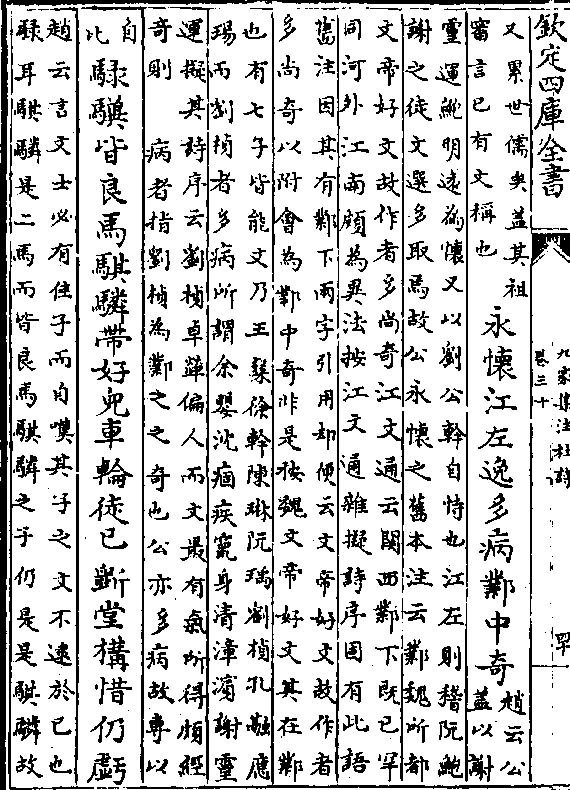 欽定四庫全書
九家集注杜詩
卷三十
罕
又累世儒矣蓋其祖
審言已有文稱也
永懷江左逸多病鄴中奇
趙云公
蓋以謝
靈運鮑明遠為懷又以劉公幹自恃也江左則稽阮鮑
謝之徒文選多取焉故公永懷之舊本注云鄴魏所都
文帝好文故作者多尚奇江文通云關西鄴下既已罕
同河外江南頗為異法按江文通雜擬詩序固有此語
舊注因其有鄴下兩字引用却便云文帝好文故作者
多尚奇以附會為鄴中奇非是按魏文帝好文其在鄴
也有七子皆能文乃王粲徐幹陳琳阮瑀劉楨孔融應
瑒而劉楨者多病所謂余嬰沈痼疾竄身清漳濱謝靈
運擬其詩序云劉楨卓犖偏人而文最有氣所得頗經
奇則
病者指劉楨為鄴之之奇也公亦多病故專以
自
比
騄驥皆良馬騏驎帶好兒車輪徒已斵堂構惜仍虧
趙云言文士必有佳子而自嘆其子之文不逮於已也
騄耳騏驎是二馬而皆良馬騏驎之子仍是是騏驎故